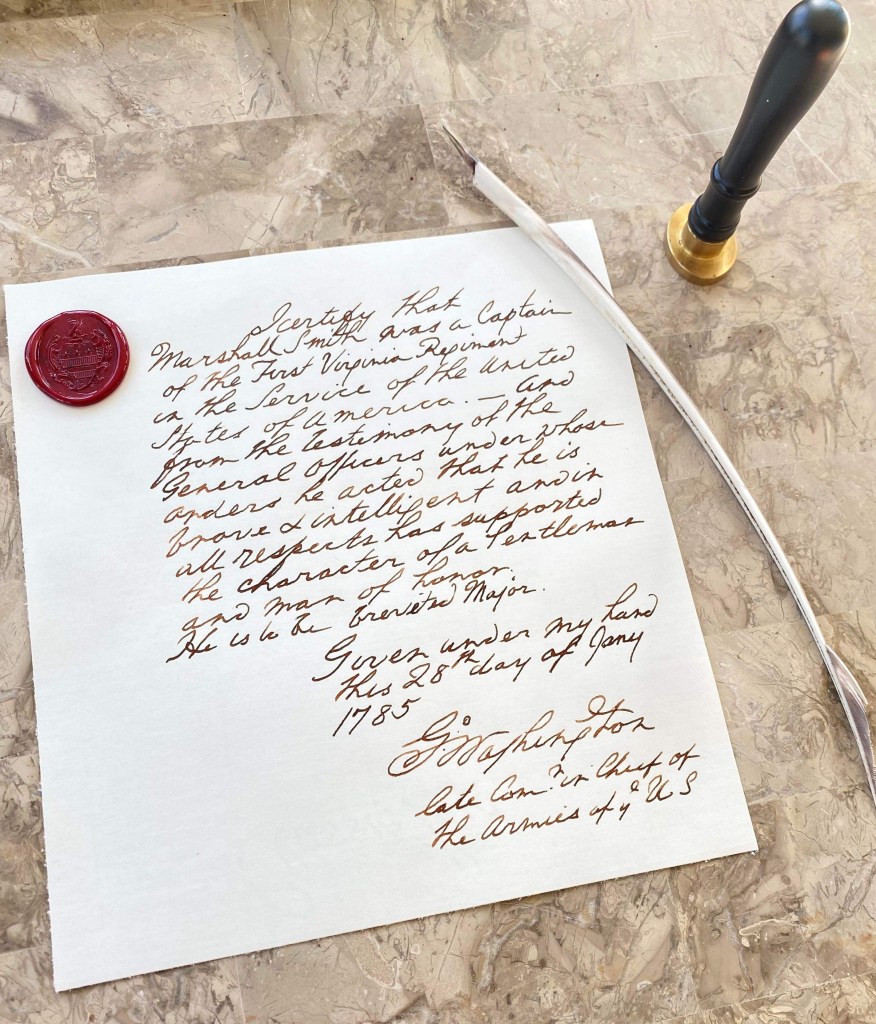 I certify that
Marshall Smith was a Captain
of the First Virginia Regiment
in the Service of the United
States of America. — and
from the testimony of the
General Officers under whose
orders he acted that he is
brave & intelligent and in
all respects has supported
the character of a Gentleman
and man of honor.
He is to be brevited Major.
Given under my hand
this 28th day of Jany
1785
Go: Washington
late Comr in Chief of
the Armies of ye U S